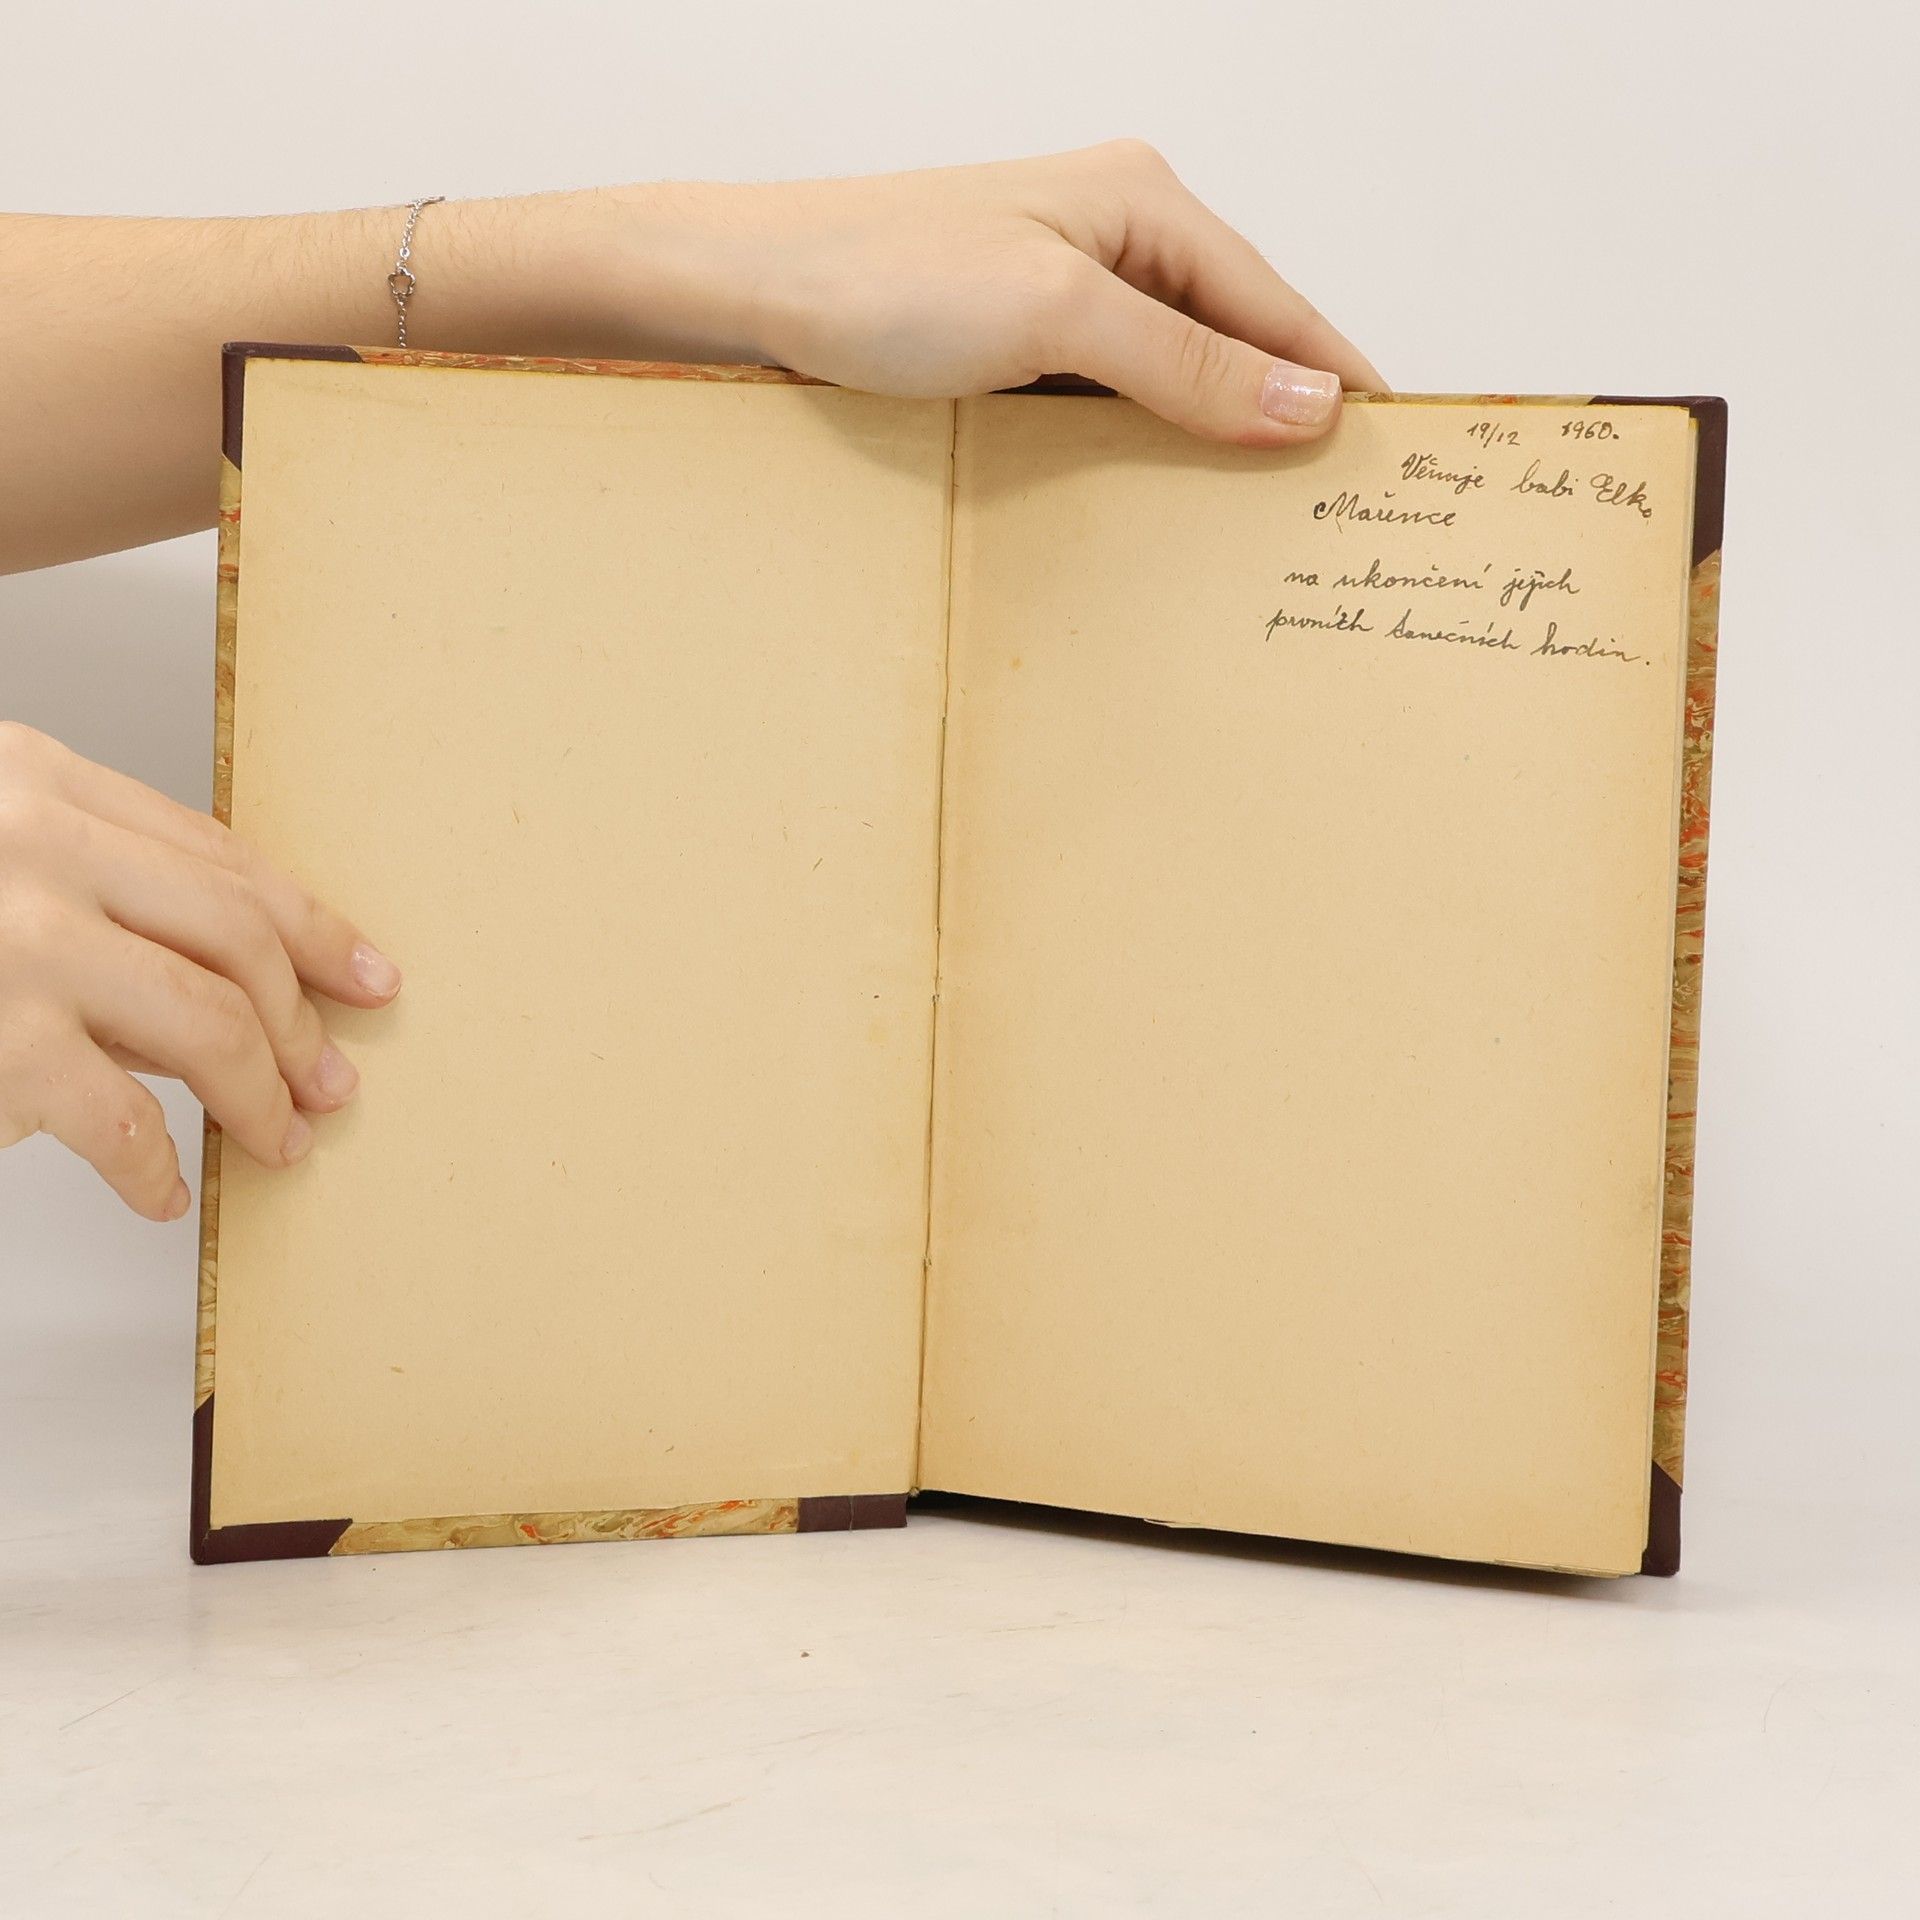 19/12 1960.
Věnuje babi Elko
Mařence
na ukončení jejich
prvních tanečních hodin.